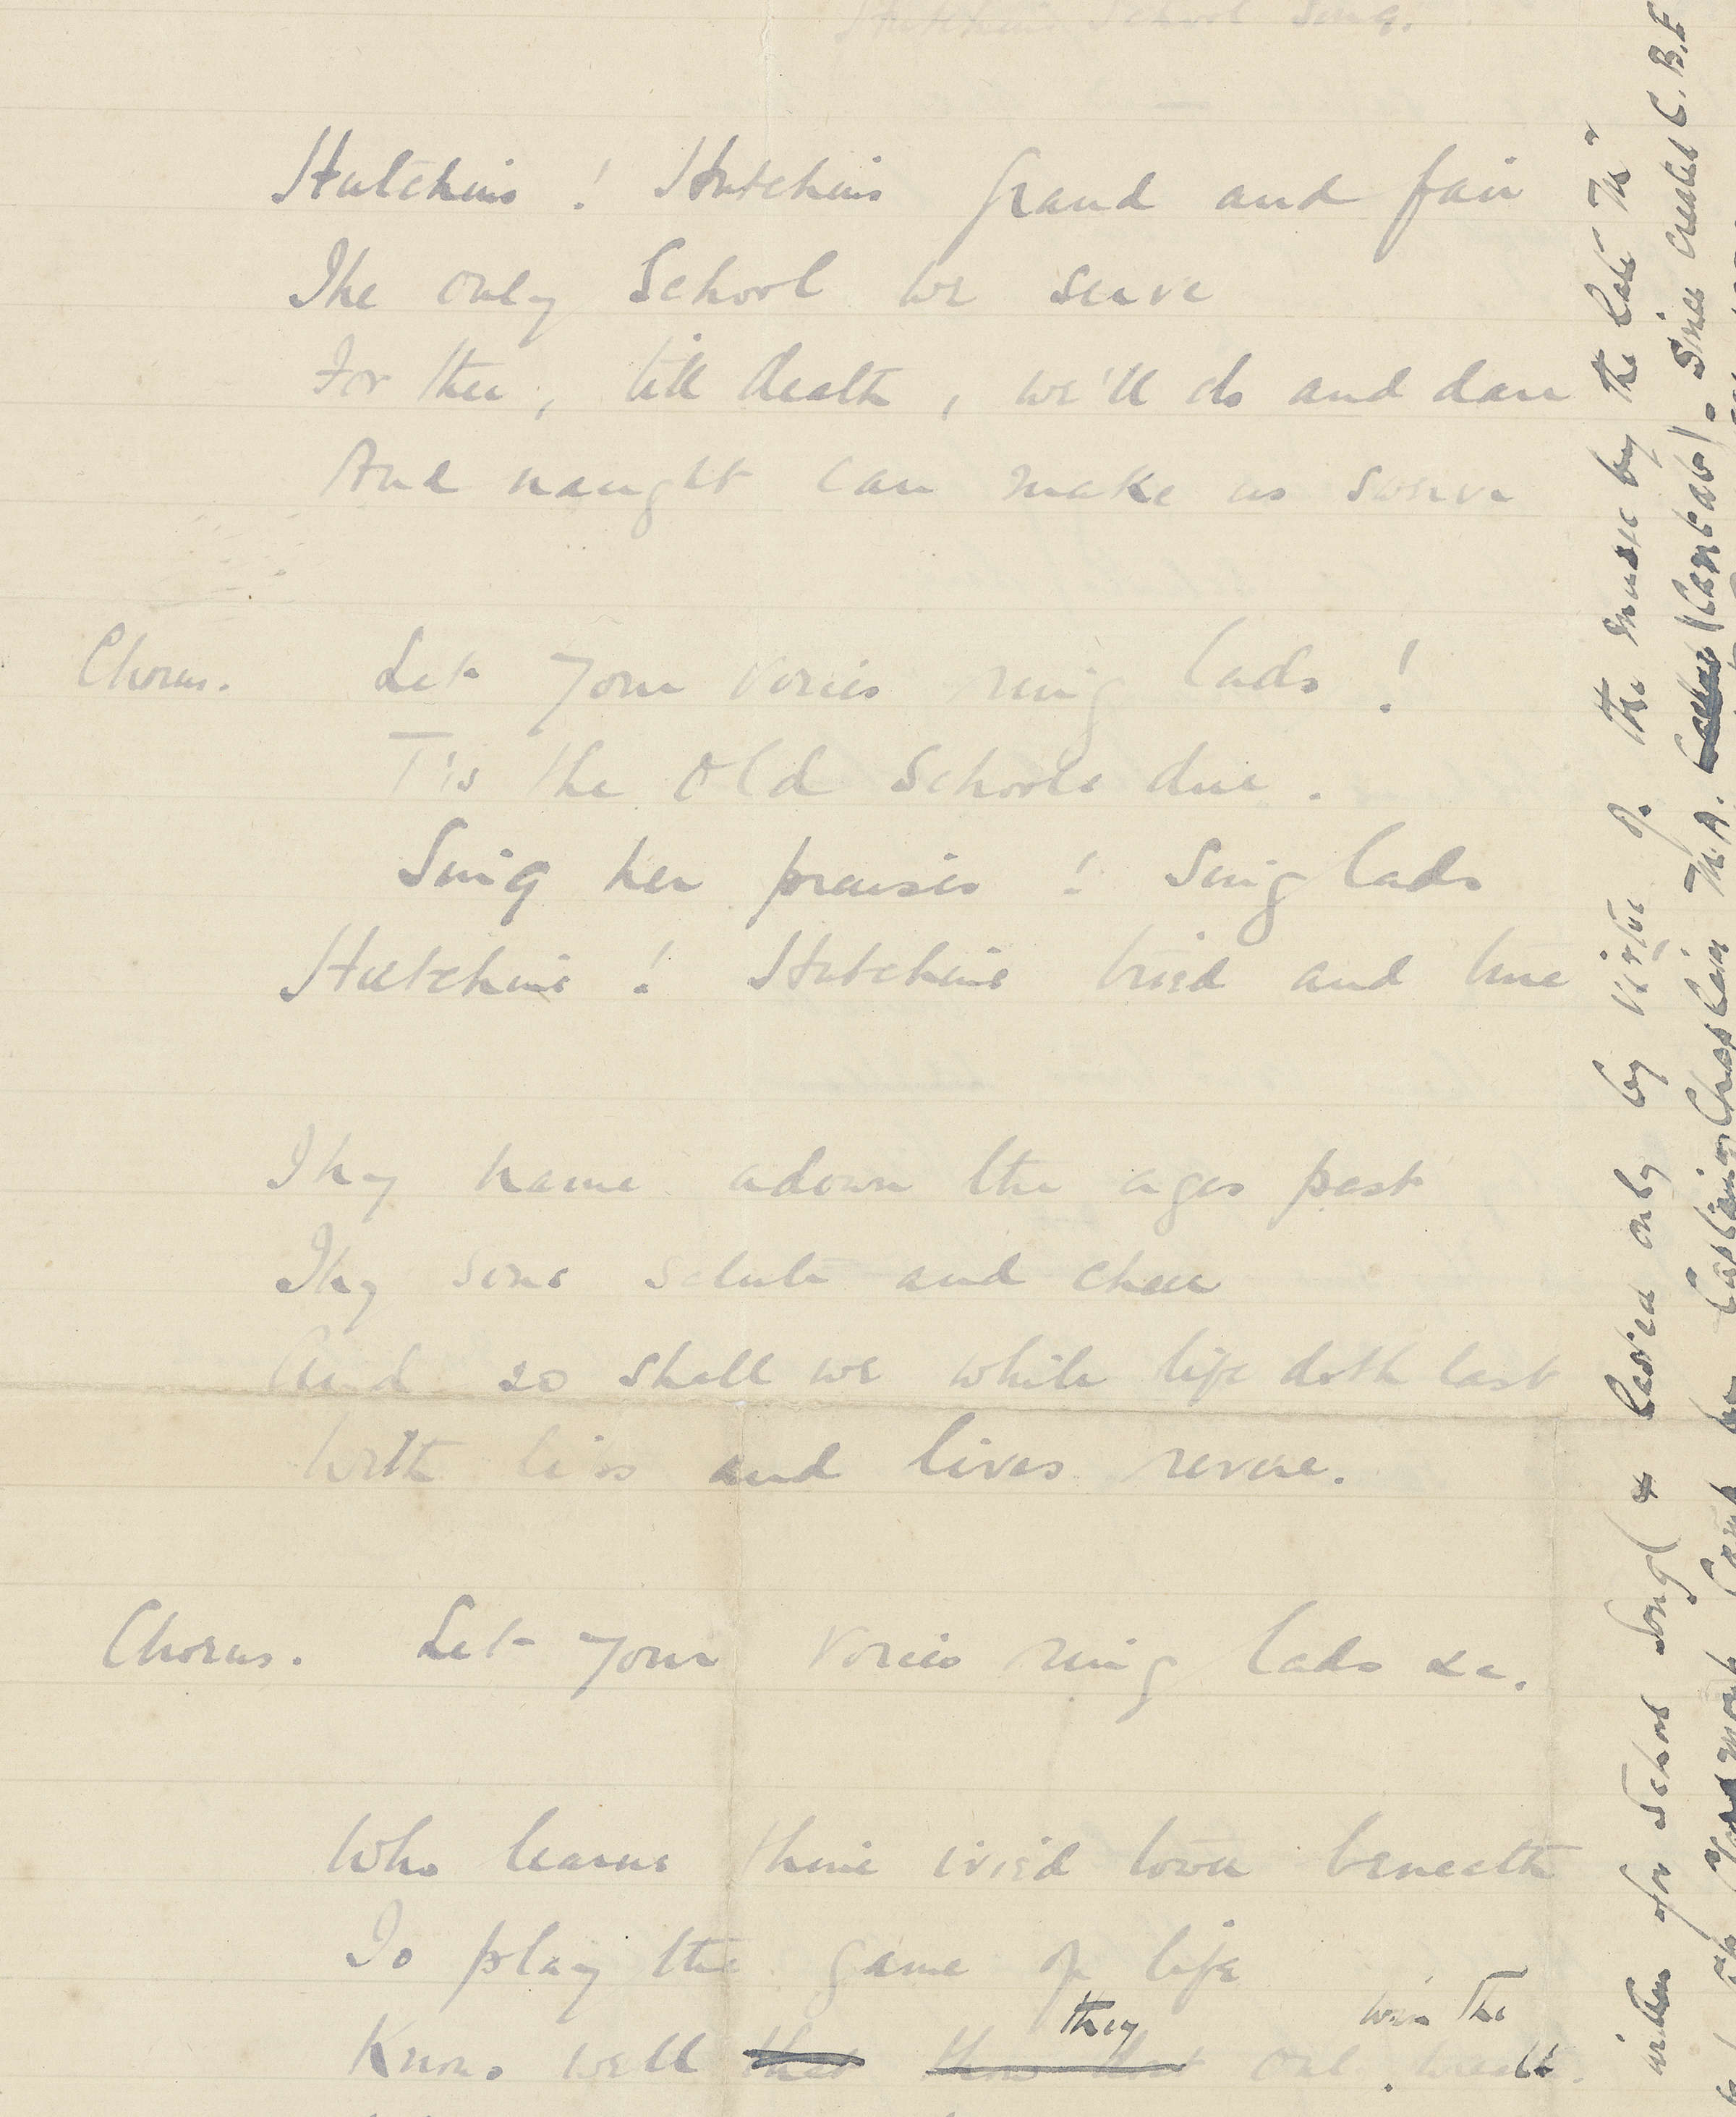 Hutchins School Song.
Hutchins! Hutchins grand and fair
The only School we serve
For thee, till death, we'll do and dare
And naught can make us swerve
Chorus. Let your voices ring lads!
T'is the Old Schools due.
Sing her praises! Sing lads
Hutchins! Hutchins tried and true
Thy name adown the ages past
Thy sons salute and cheer
And so shall we while life doth last
With lips and lives revere.
Chorus. Let your voices ring lads &c.
Who learns thine ivied tower beneath
To play the game of life
they win the
Knows well that thou dost one wreath.
written for School Song (& lasted only by virtue of the music by the late "M"
Captain Chaplain M.A. (Cantab). Since created C.B.E